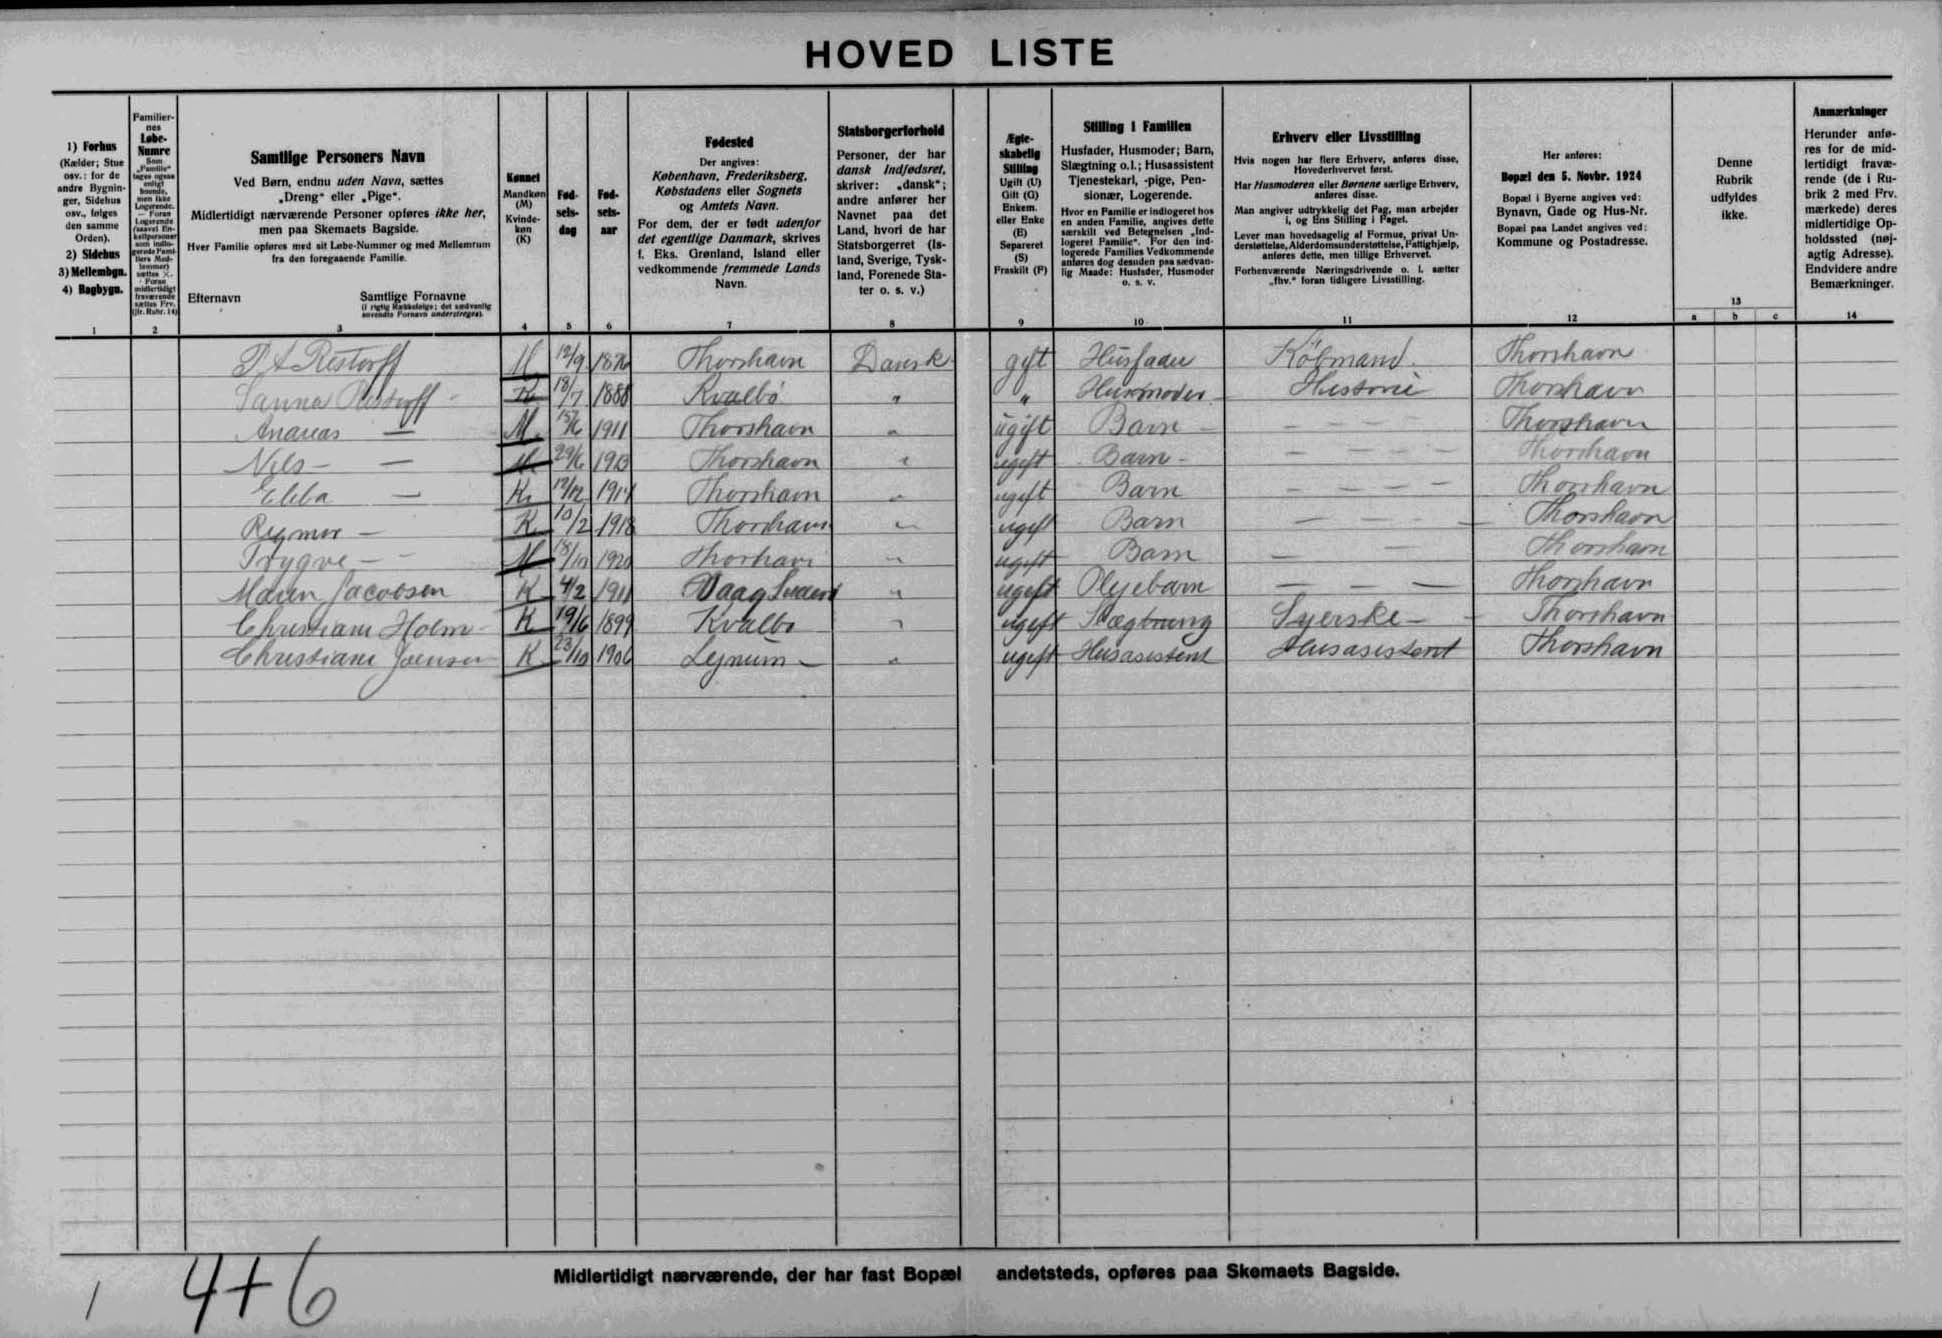 HOVED LISTE
1) Forhus
(Kælder; Stue
osv.: for de
andre Bygnin-
ger, Sidehus
osv., følges
den samme
Orden).
2) Sidehus
3) Mellembgn.
4) Bagbygn.
1
Familier-
nes
Løbe-
Numre
Som
„Familie"
tages ogsaa
enligt
boende,
men ikke
Logerende.
— Foran
Logerende
(saavel En-
keltpersoner
som indlo-
gerede Fami-
liers Med-
lemmer)
sættes ×.
· Foran
midlertidigt
fraværende
sættes Frv.
(jfr. Rubr. 14)
2
Samtlige Personers Navn
Ved Børn, endnu uden Navn, sættes
„Dreng" eller „Pige".
Midlertidigt nærværende Personer opføres ikke her,
men paa Skemaets Bagside.
Hver Familie opføres med sit Løbe-Nummer og med Mellemrum
fra den foregaaende Familie.
Efternavn Samtlige Fornavne
(i rigtig Rækkefølge; det sædvanlig
anvendte Fornavn understreges).
3
Kønnet
Mandkøn
(M)
Kvinde-
køn
(K)
4
Fød-
sels-
dag
5
Fød-
sels-
aar
6
Fødested
Der angives:
København, Frederiksberg,
Købstadens eller Sognets
og Amtets Navn.
For dem, der er født udenfor
det egentlige Danmark, skrives
f. Eks. Grønland, Island eller
vedkommende fremmede Lands
Navn.
7
Statsborgerforhold
Personer, der har
dansk Indfødsret,
skriver: „dansk";
andre anfører her
Navnet paa det
Land, hvori de har
Statsborgerret (Is-
land, Sverige, Tysk-
land, Forenede Sta-
ter o. s. v.)
8
Ægte-
skabelig
Stilling
Ugift (U)
Gift (G)
Enkem.
eller Enke
(E)
Separeret
(S)
Fraskilt (F)
9
Stilling i Familien
Husfader, Husmoder; Barn,
Slægtning o.l.; Husassistent
Tjenestekarl, -pige, Pen-
sionær, Logerende.
Hvor en Familie er indlogeret hos
en anden Familie, angives dette
særskilt ved Betegnelsen „Ind-
logeret Familie". For den ind-
logerede Families Vedkommende
anføres dog desuden paa sædvan-
lig Maade: Husfader, Husmoder
o. s. v.
10
Erhverv eller Livsstilling
Hvis nogen har flere Erhverv, anføres disse,
Hovederhvervet først.
Har Husmoderen eller Børnene særlige Erhverv,
anføres disse.
Man angiver udtrykkelig det Fag, man arbejder
i, og Ens Stilling i Faget.
Lever man hovedsagelig af Formue, privat Un-
derstøttelse, Alderdomsunderstøttelse, Fattighjælp,
anføres dette, men tillige Erhvervet.
Forhenværende Næringsdrivende o. l. sætter
„fhv." foran tidligere Livsstilling.
11
Her anføres:
Bopæl den 5. Novbr. 1924
Bopæl i Byerne angives ved:
Bynavn, Gade og Hus-Nr.
Bopæl paa Landet angives ved:
Kommune og Postadresse.
12
Denne
Rubrik
udfyldes
ikke.
13
a b c
Anmærkninger
Herunder anfø-
res for de mid-
lertidigt fravæ-
rende (de i Ru-
brik 2 med Frv.
mærkede) deres
midlertidige Op-
holdssted (nøj-
agtig Adresse).
Endvidere andre
Bemærkninger.
14
P A Restorff M 12/9 1876 Thorshavn Dansk gift Husfader Köbmand Thorshavn
Sanna Restorff K 18/7 1888 Kvalbö " " Husmoder Thorshavn
Andreas — M 1911 Thorshavn " ugift Barn — — — — Thorshavn
Nils — — M 29/6 1913 Thorshavn " ugift Barn — — — — Thorshavn
Ebba — K 12/12 Thorshavn " ugift Barn — — — — Thorshavn
Regmor — K 10/2 1918 Thorshavn " ugift Barn — — — Thorshavn
Trygve — M 18/10 1920 Thorshavn " ugift Barn — — Thorshavn
Maren Jacobsen K 4/2 1911 Vaag " ugift Plejebarn — — — Thorshavn
Christiane Holm K 19/6 1899 Kvalbø " ugift Slægtning Syerske — Thorshavn
Christiane Joensen K 23/10 1906 Lejnum — " ugift Husasistent Husasistent Thorshavn
Midlertidigt nærværende, der har fast Bopæl andetsteds, opføres paa Skemaets Bagside.
1 4+6